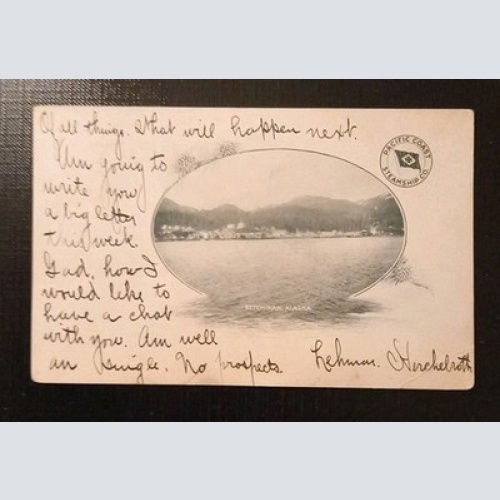 Of all things. What will happen next.
Am going to
write you
a big letter
this week.
Gad, how I
would like to
have a chat
with you. Am well
an single. No prospects.
Lehman. Herchelroth
PACIFIC COAST
STEAMSHIP CO.
KETCHIKAN, ALASKA